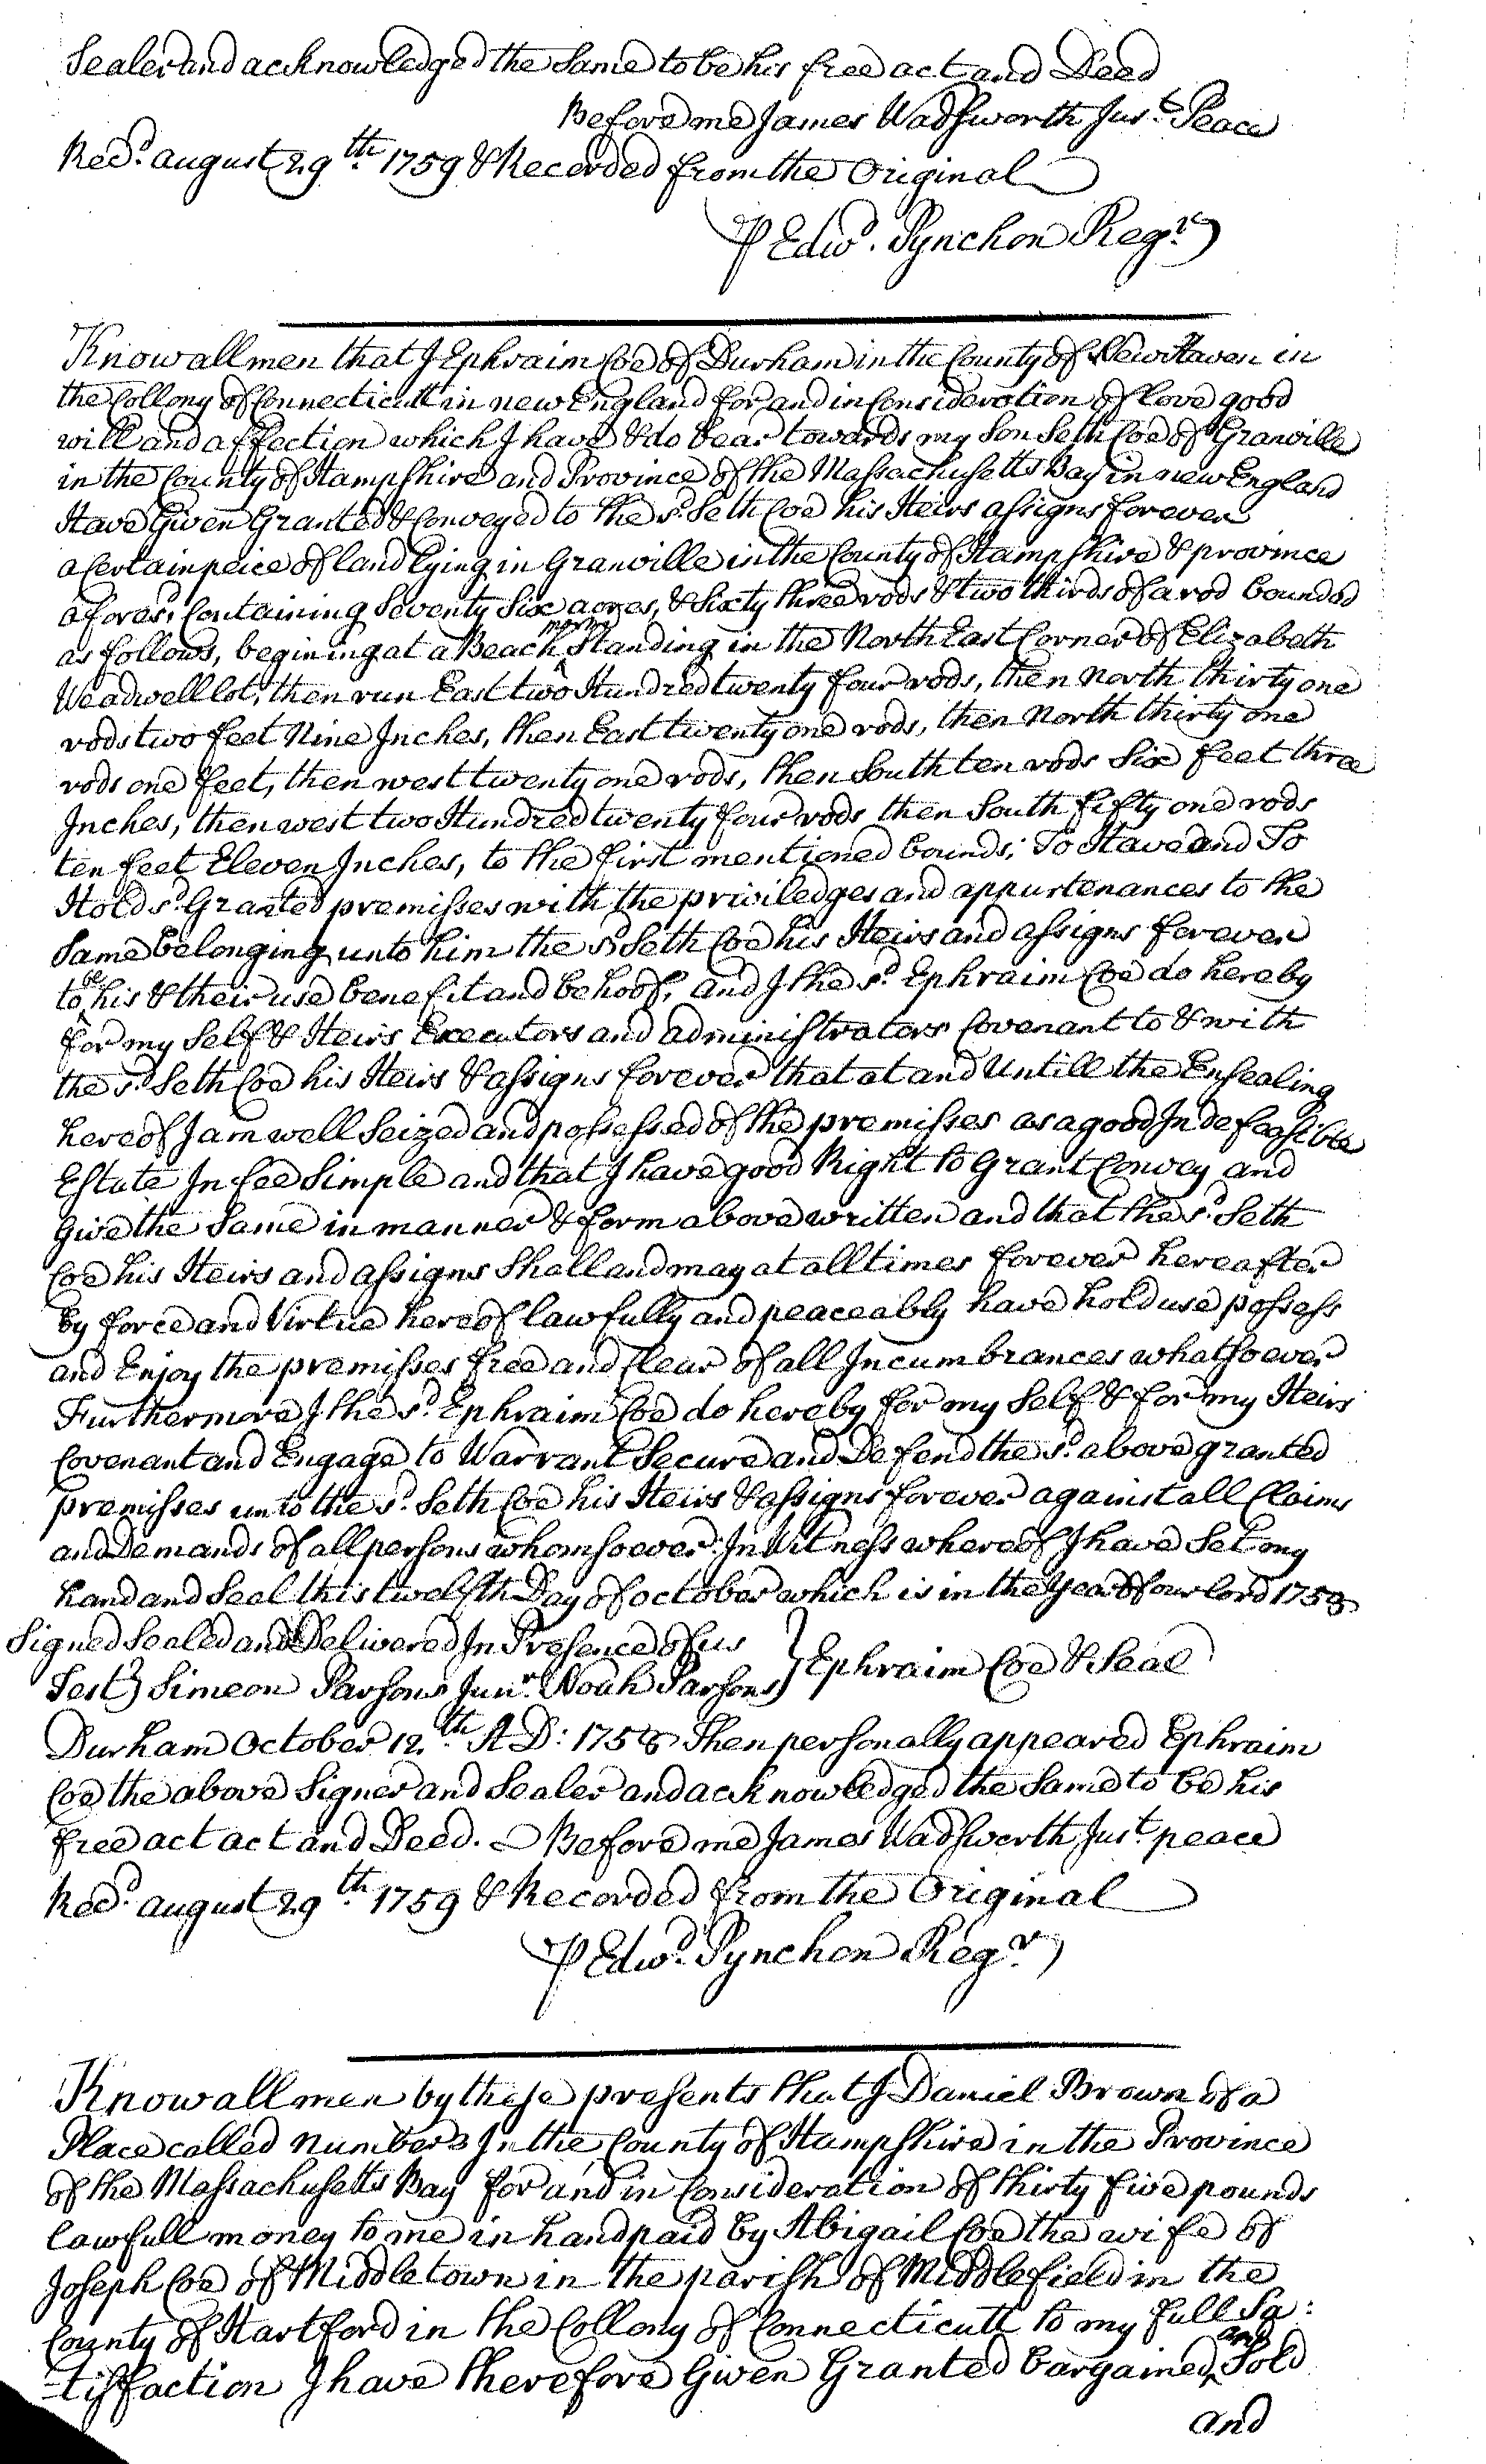 Sealer and acknowledged the Same to be his free act and Deed
Before me James Wadsworth Jus.t Peace
Rec.d august 29.th 1759 & Recorded from the Original
P Edw.d Pynchon Reg.r
Know all men that I Ephraim Coe of Durham in the County of New Haven in
the Collony of Connecticutt in new England for and in Consideration of Love good
will and affection which I have & do bear towards my Son Seth Coe of Granville
in the County of Hampshire and Province of the Massachusetts Bay in new England
Have Given Granted & Conveyed to the s.d Seth Coe his Heirs assigns forever
a Certain peice of land lying in Granville in the County of Hampshire & province
afores.d Containing Seventy Six acres, & Sixty three rods & two thirds of a rod bounded
as follows, begining at a Beach Standing in the North East Corner of Elizabeth
Weadwell lot, then run East two Hundred twenty four rods, then North thirty one
rods two feet Nine Inches, then East twenty one rods, then North thirty one
rods one feet, then west twenty one rods, then South ten rods Six feet three
Inches, then west two Hundred twenty four rods then South fifty one rods
ten feet Eleven Inches, to the first mentioned bounds; To Have and To
Hold s.d Granted premisses with the priviledges and appurtenances to the
Same belonging unto him the s.d Seth Coe his Heirs and assigns forever
to be his & their use benefit and behoof, and I the s.d Ephraim Coe do hereby
for my Self & Heirs Executors and administrators Covenant to & with
the s.d Seth Coe his Heirs & assigns forever that at and Untill the Ensealing
hereof I am well Seized and possessed of the premisses as a good Indefeasible
Estate In fee Simple and that I have good Right to Grant Convey and
Give the Same in manner & form above written and that the s.d Seth
Coe his Heirs and assigns Shall and may at all times forever hereafter
by force and Virtue hereof lawfully and peaceably have hold use possess
and Enjoy the premisses free and Clear of all Incumbrances whatsoever
Furthermore I the s.d Ephraim Coe do hereby for my Self & for my Heirs
Covenant and Engage to Warrant Secure and Defend the s.d above granted
premisses unto the s.d Seth Coe his Heirs & assigns forever against all Claims
and Demands of all persons whomsoever. In Witness whereof I have Set my
hand and Seal this twelfth Day of october which is in the Year of our lord 1758
Signed Sealed and Delivered In Presence of us
Test} Simeon Parsons Jun.r Noah Parsons } Ephraim Coe & Seal
Durham October 12.th A D: 1758 Then personally appeared Ephraim
Coe the above Signer and Sealer and acknowledged the Same to be his
free act act and Deed. Before me James Wadsworth Jus.t peace
Rec.d august 29.th 1759 & Recorded from the Original
P Edw.d Pynchon Reg.r
Know all men by these presents that I Daniel Brown of a
Place called number 3 In the County of Hampshire in the Province
of the Massachusetts Bay for and in Consideration of thirty five pounds
lawfull money to me in hand paid by Abigail Coe the wife of
Joseph Coe of Middletown in the parish of Middlefield in the
County of Hartford in the Collony of Connecticutt to my full Sa:
-tisfaction I have therefore Given Granted bargained and Sold
and